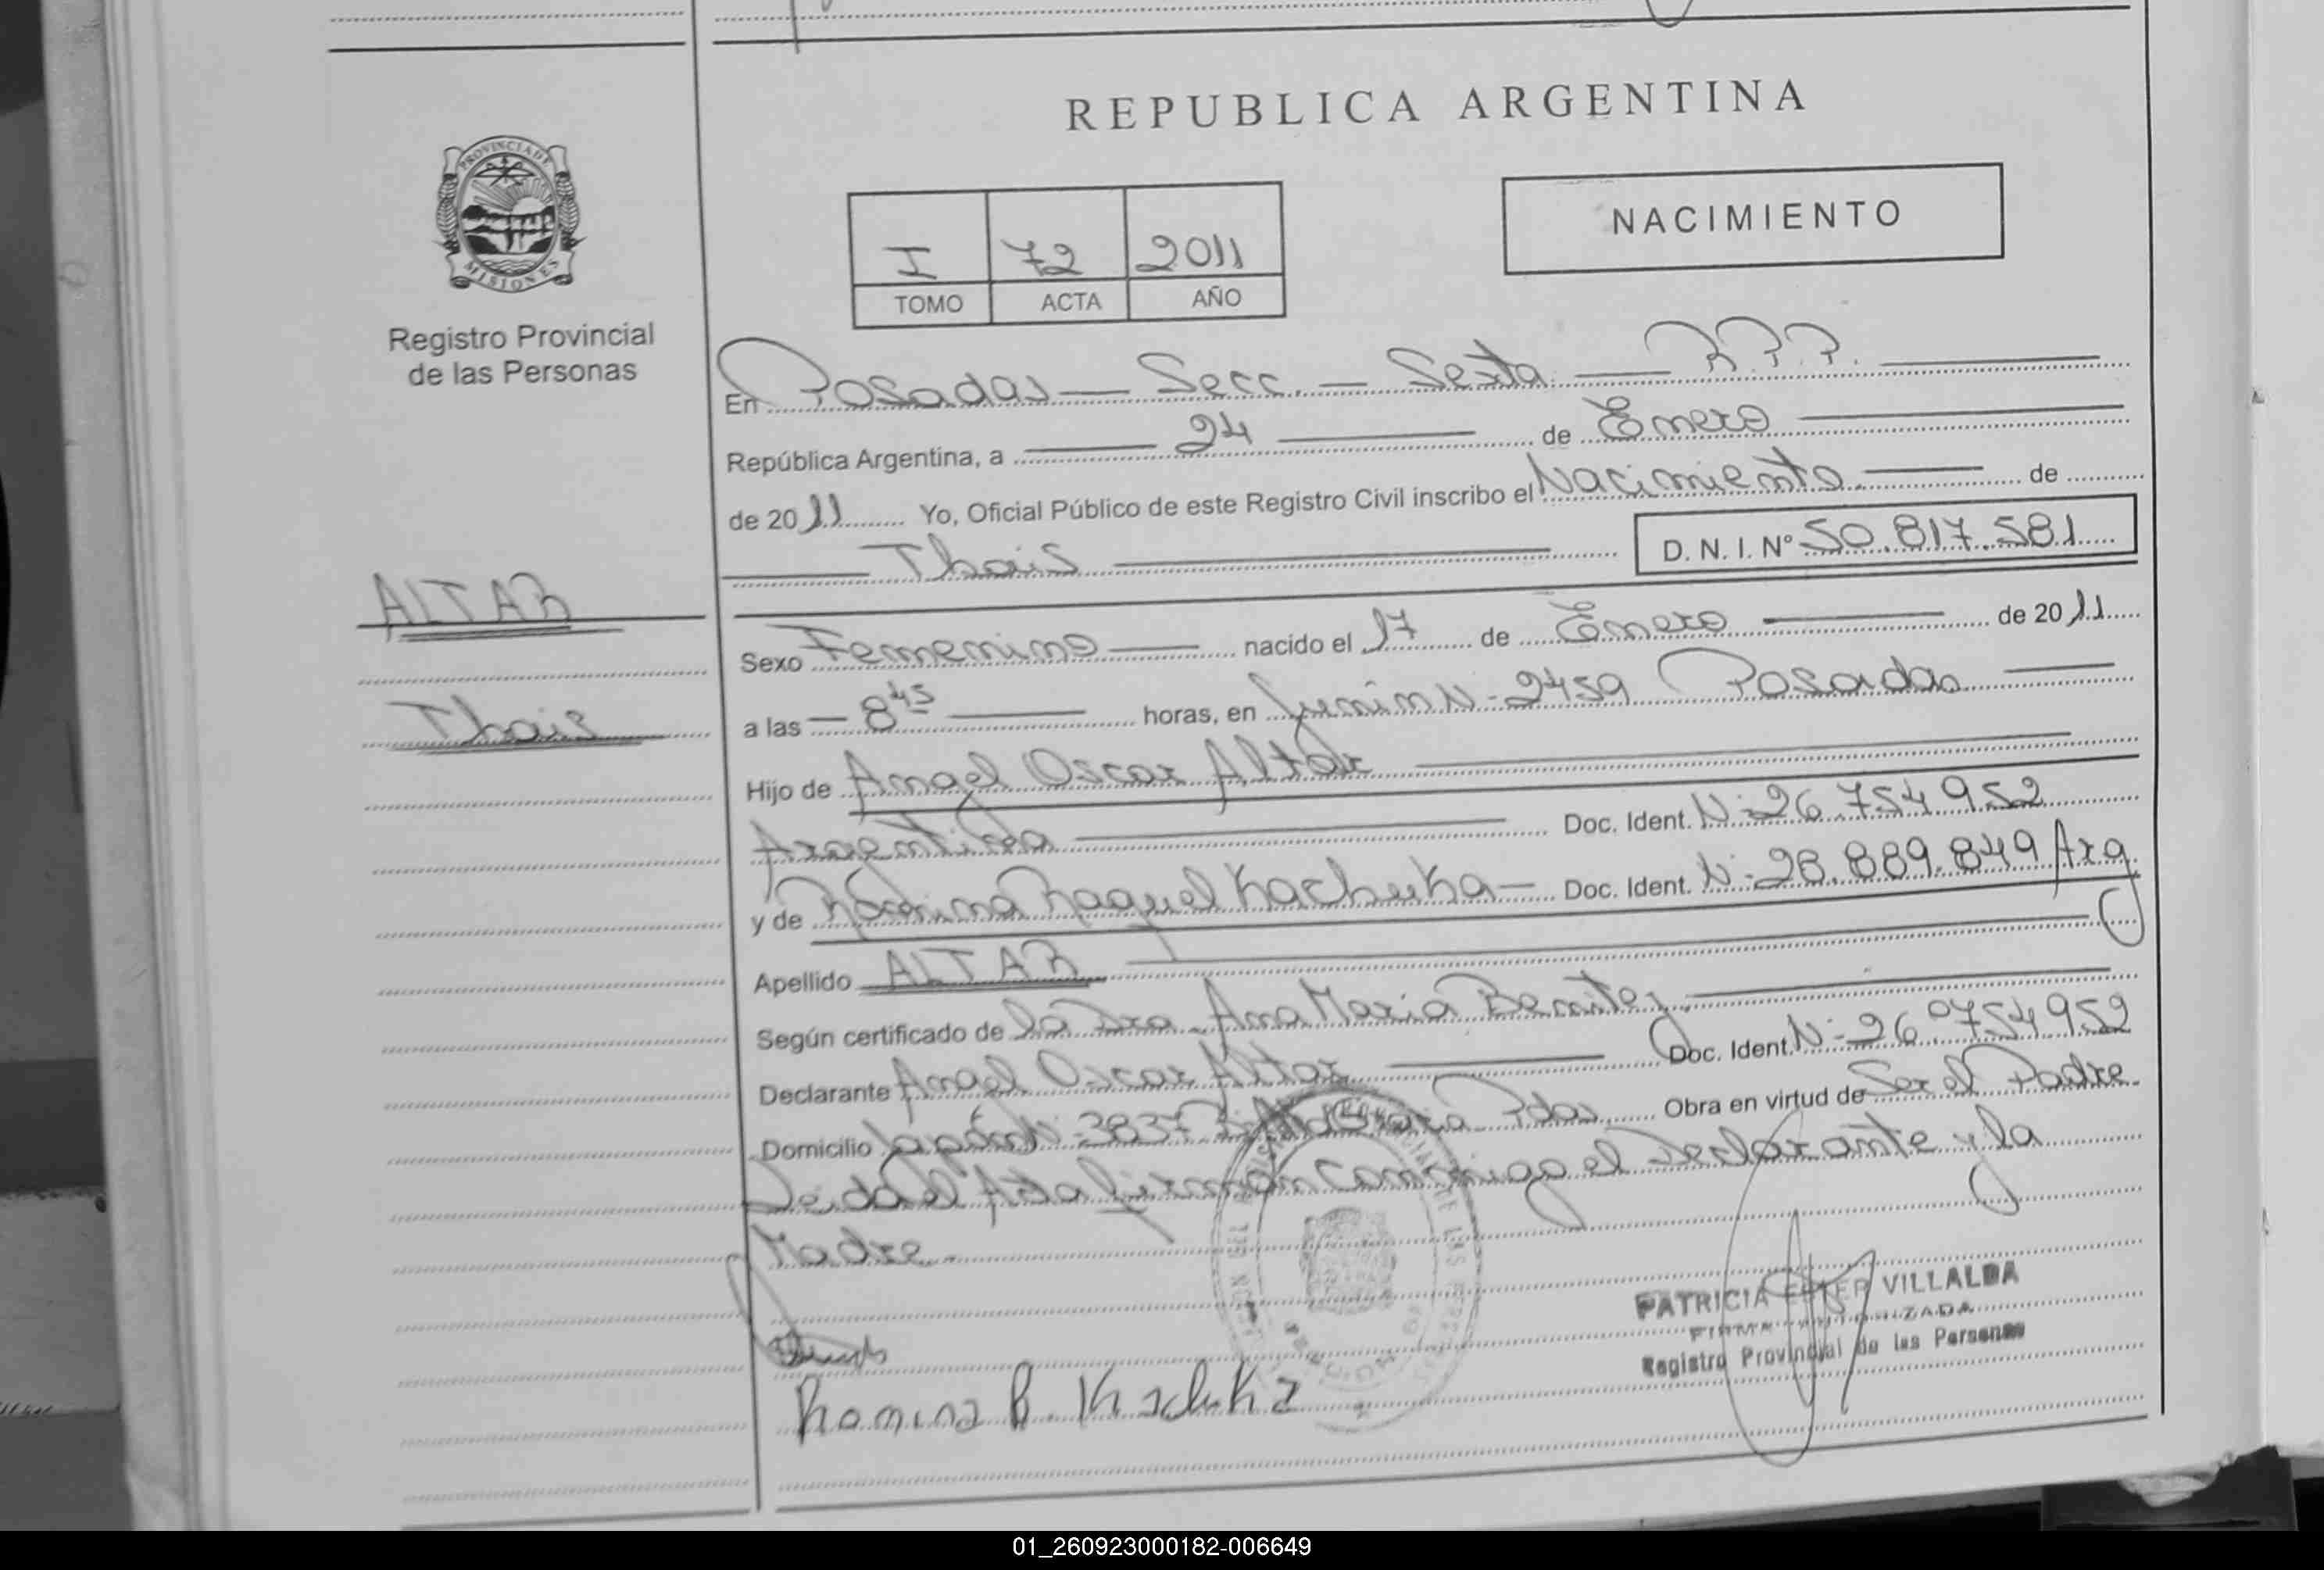 REPUBLICA ARGENTINA
PROVINCIA DE
MISIONES
Registro Provincial
de las Personas
NACIMIENTO
I 72 2011
TOMO ACTA AÑO
En Posadas — Secc. — Sexta — R.P.P.
República Argentina, a 24 de Enero
de 2011 Yo, Oficial Público de este Registro Civil inscribo el Nacimiento. de
Thais D. N. I. Nº 50.817.581
ALTAR
Thais
Sexo Femenino nacido el 17 de Enero de 2011
a las 8 45 horas, en Junin N-2459 Posadas
Hijo de Angel Oscar Altar
Argentino Doc. Ident. N-26.754952
y de Romina Raquel Kachuka Doc. Ident. N-28.889.849 Arg
Apellido ALTAR
Según certificado de la Dra. Ana Maria Benitez
Declarante Angel Oscar Altar Doc. Ident. N-26.754952
Domicilio 3837 Pdas Obra en virtud de Ser el Padre
Leida el Acta firman conmigo el Declarante y la
Madre.
PATRICIA ESTER VILLALBA
FIRMA AUTORIZADA
Registro Provincial de las Personas
Romina R. Kachuka
01_260923000182-006649